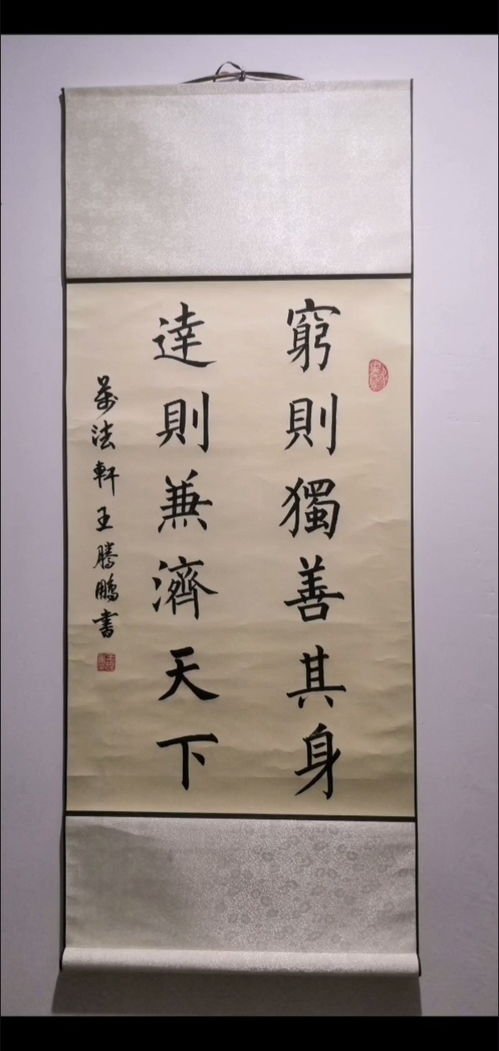 窮則獨善其身
達則兼濟天下
萬法軒王騰鵬書